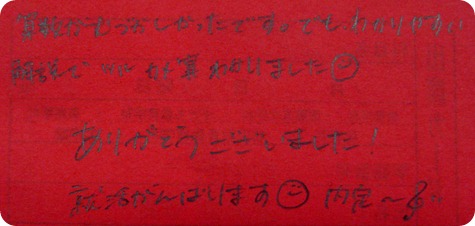 むつかしかったです でも、わかりやすい
解説で わかりました☺
ありがとうございました!
就活がんばります☺ 内定〜